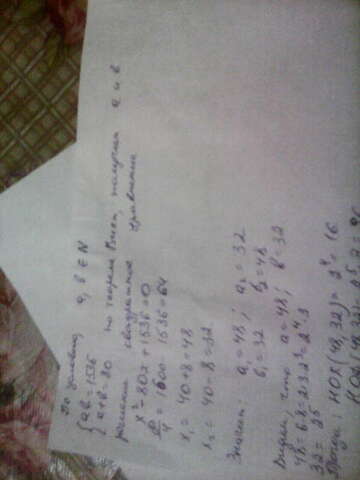 По условию a, b ∈ N
{ab = 1536
{a+b = 80
по теореме Виета, получим a и b
решения квадратного уравнения
x² - 80x + 1536 = 0
D/4 = 1600 - 1536 = 64
x₁ = 40+8 = 48
x₂ = 40-8 = 32
Значит: a₁ = 48; a₂ = 32
b₁ = 32 b₂ = 48
Видим, что a = 48; b = 32
48 = 6·8 = 2·3·2³ = 2⁴·3
32 = 2⁵
Тогда: НОД (48, 32) = 2⁴ = 16